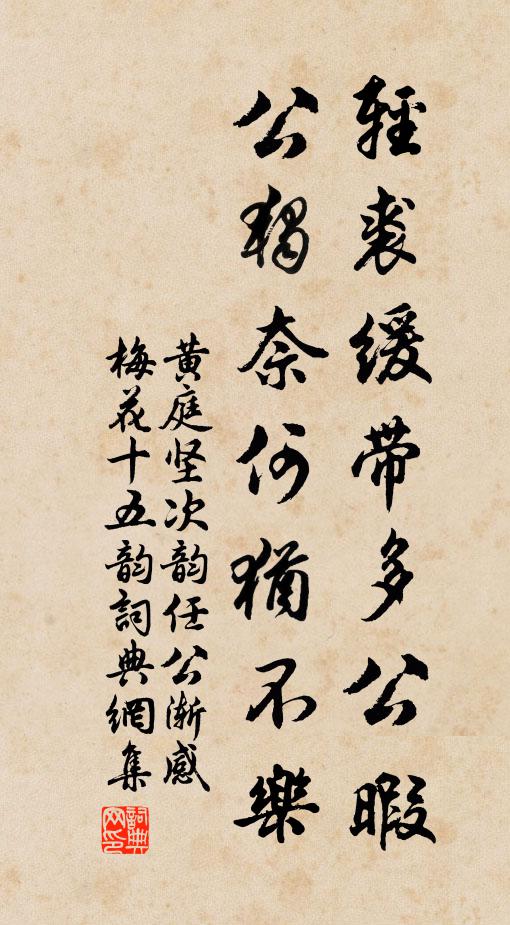 輕裘缓带多公暇
公獨奈何猶不樂
黄庭坚次韵任公渐感
梅花十五韵詞典網集
詞典网印